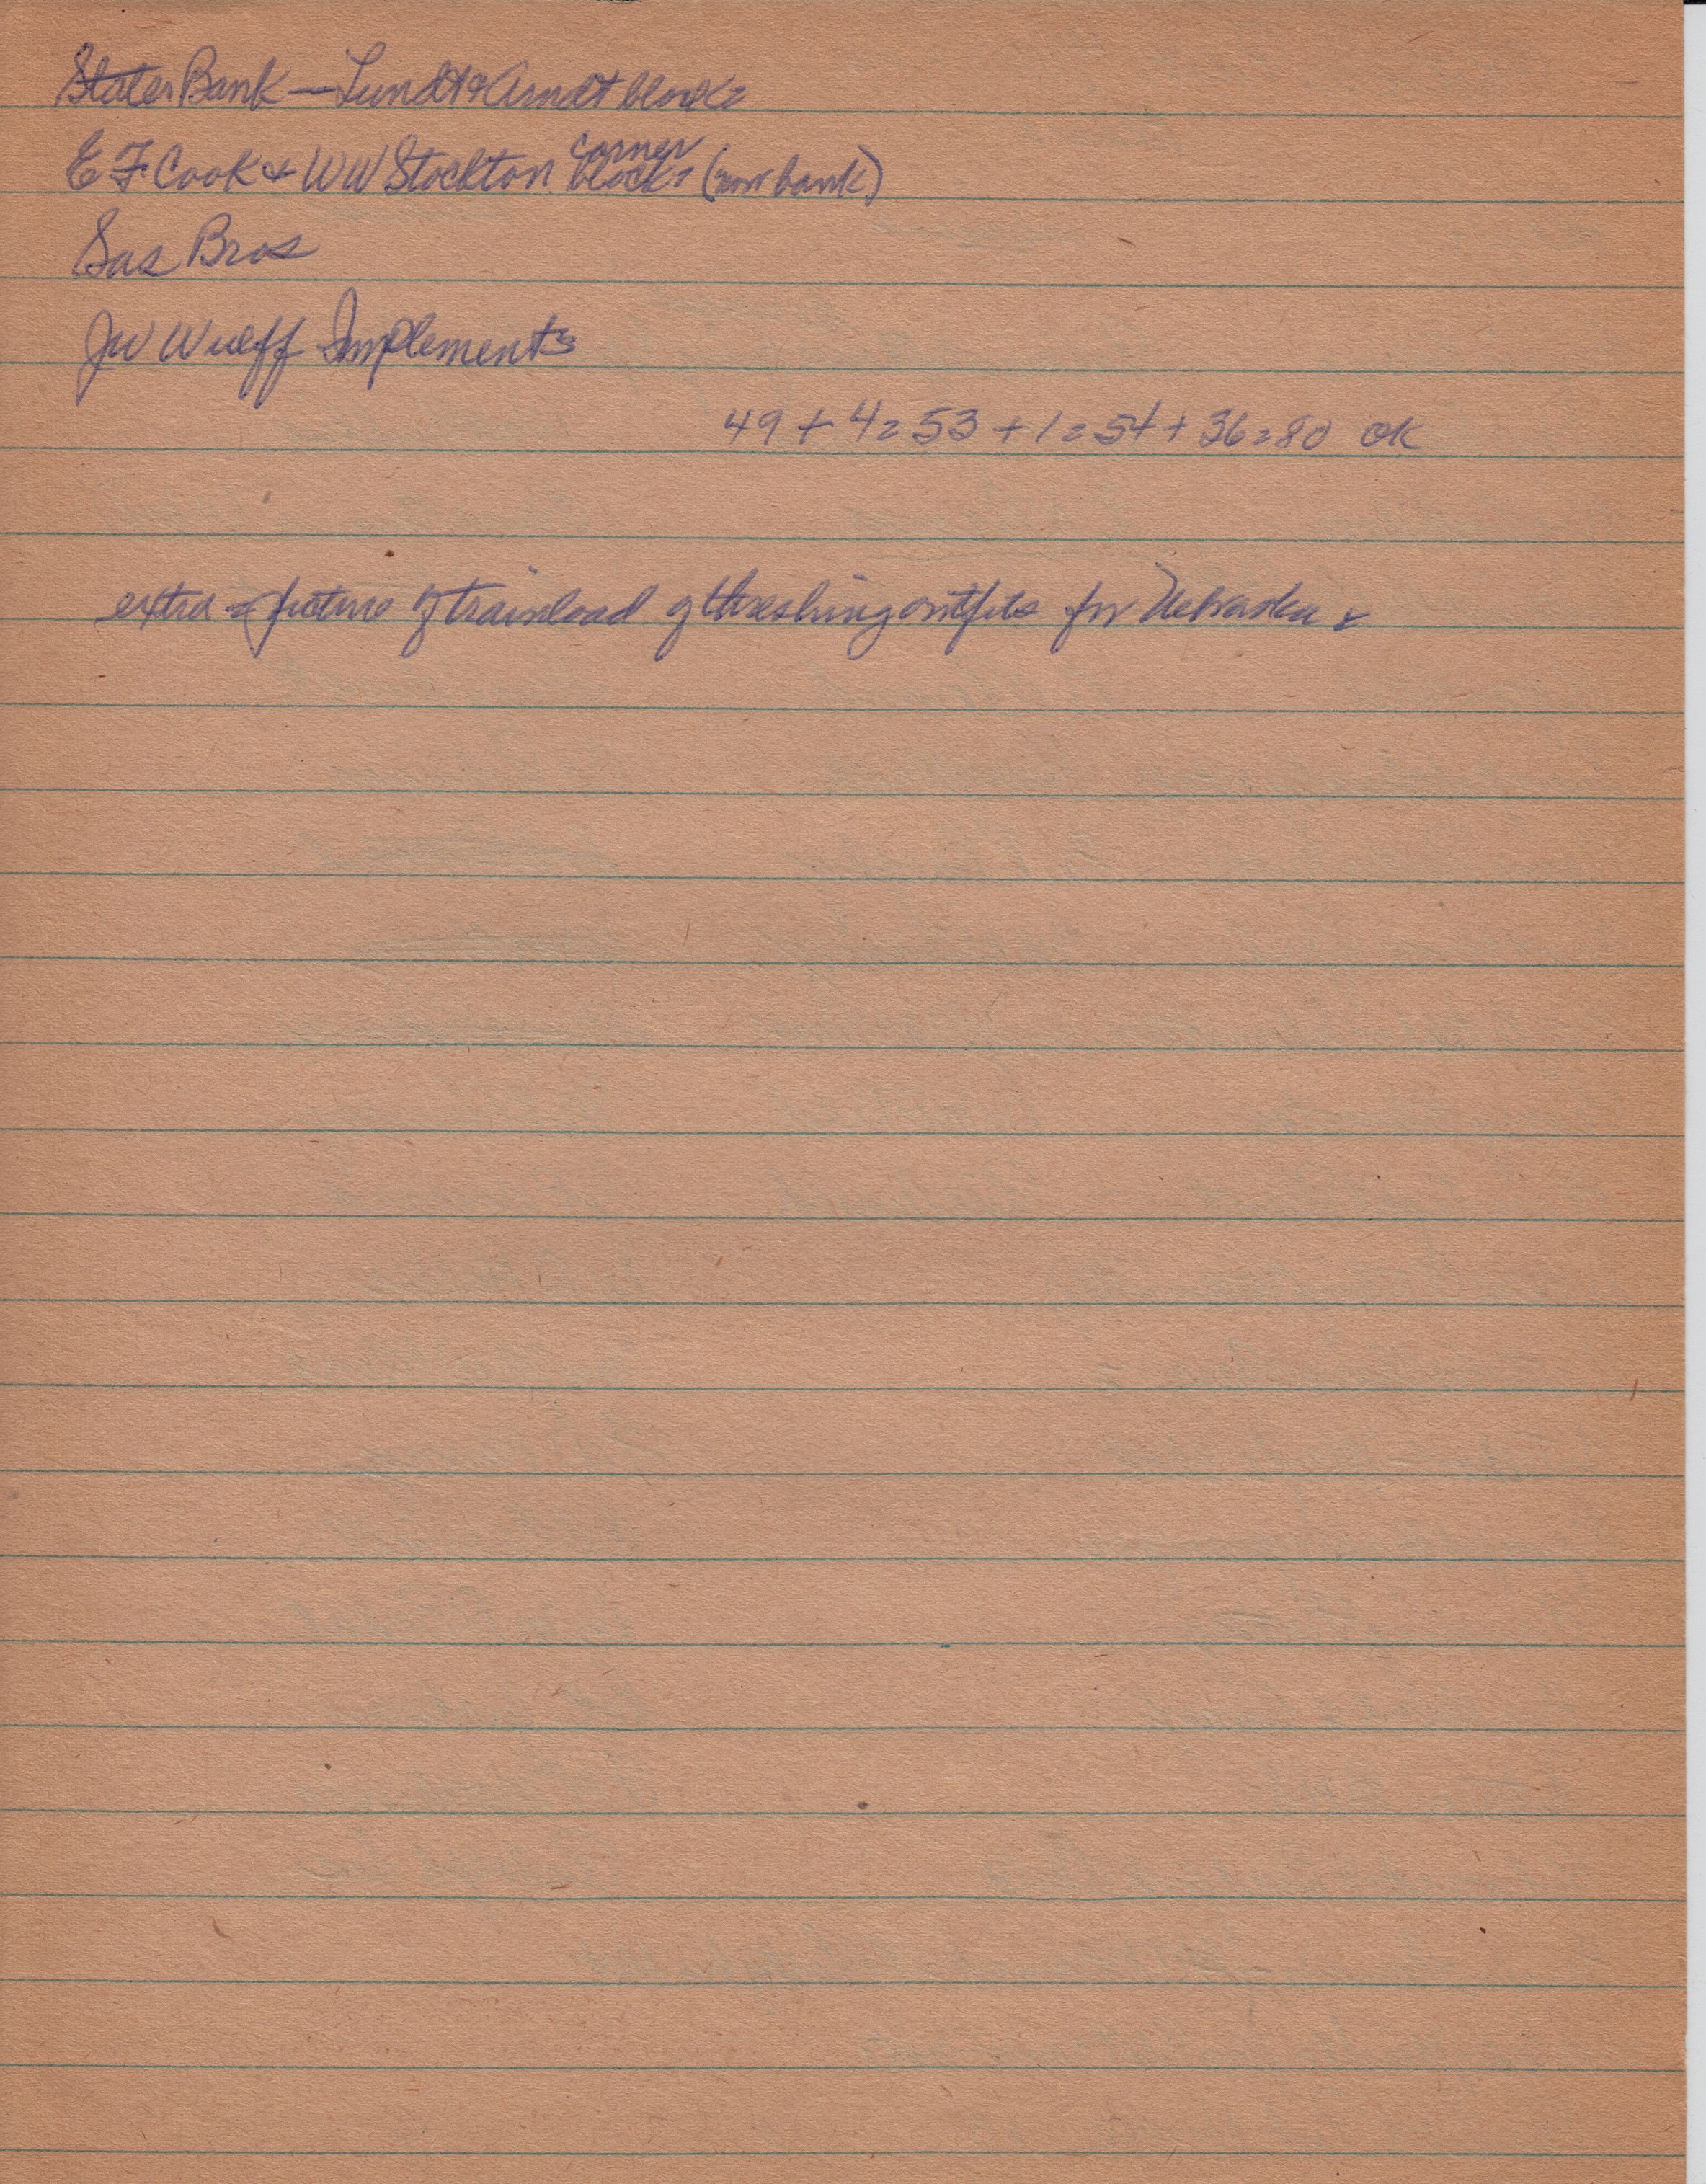 States Bank — Lundt & Arndt blocks
E F Cook & WW Stockton corner blocks (now bank)
Sas Bros
JW Wulff Implements
49 + 4 = 53 + 1 = 54 + 36 = 80 OK
extra = picture of trainload of threshing outfits for Nebraska &